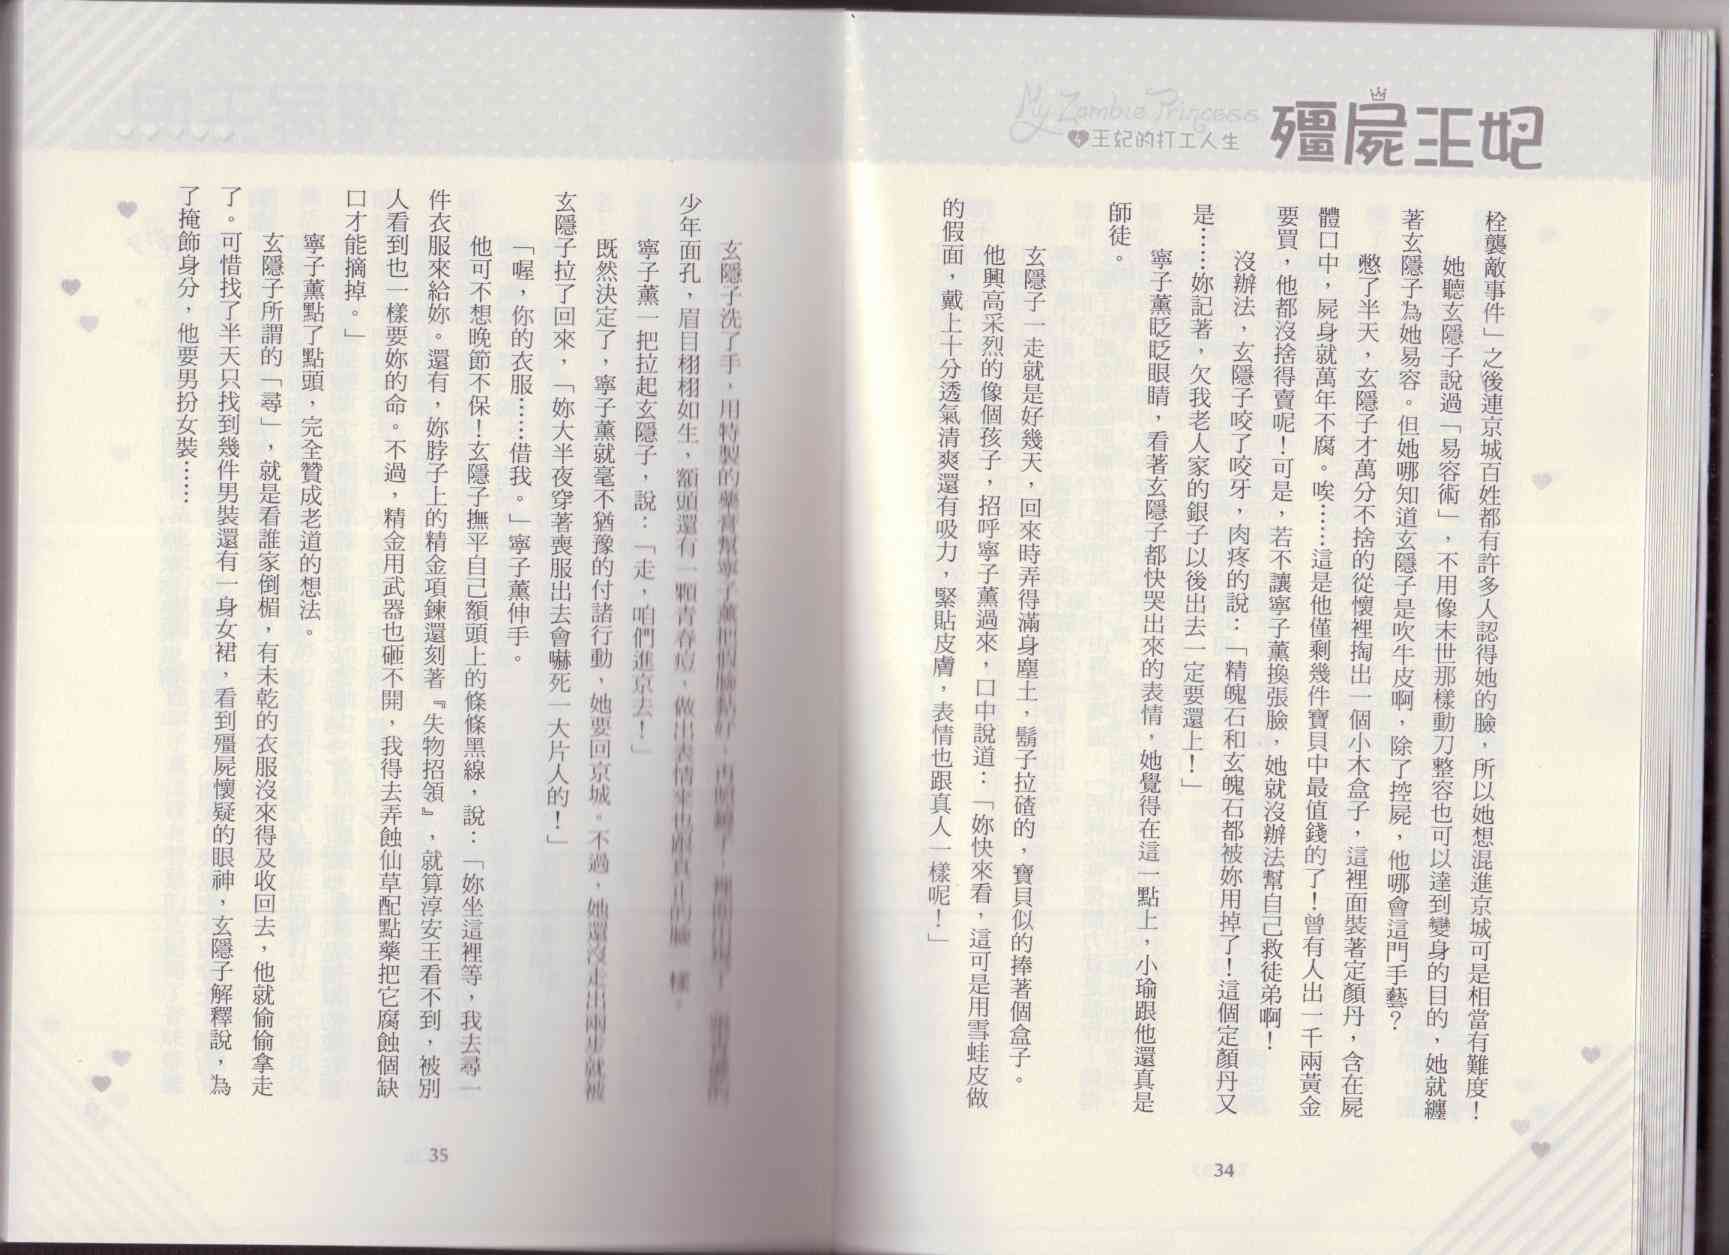 My Zombie Princess
4王妃的打工人生
殭屍王妃
栓襲敵事件」之後連京城百姓都有許多人認得她的臉，所以她想混進京城可是相當有難度！
她聽玄隱子說過「易容術」，不用像末世那樣動刀整容也可以達到變身的目的，她就纏
著玄隱子為她易容。但她哪知道玄隱子是吹牛皮啊，除了控屍，他哪會這門手藝？
憋了半天，玄隱子才萬分不捨的從懷裡掏出一個小木盒子，這裡面裝著定顏丹，含在屍
體口中，屍身就萬年不腐。唉……這是他僅剩幾件寶貝中最值錢的了！曾有人出一千兩黃金
要買，他都沒捨得賣呢！可是，若不讓寧子薰換張臉，她就沒辦法幫自己救徒弟啊！
沒辦法，玄隱子咬了咬牙，肉疼的說：「精魄石和玄魄石都被妳用掉了！這個定顏丹又
是……妳記著，欠我老人家的銀子以後出去一定要還上！」
寧子薰眨眨眼睛，看著玄隱子都快哭出來的表情，她覺得在這一點上，小瑜跟他還真是
師徒。
玄隱子一走就是好幾天，回來時弄得滿身塵土，鬍子拉碴的，寶貝似的捧著個盒子。
他興高采烈的像個孩子，招呼寧子薰過來，口中說道：「妳快來看，這可是用雪蛙皮做
的假面，戴上十分透氣清爽還有吸力，緊貼皮膚，表情也跟真人一樣呢！」
34
玄隱子洗了手，用特製的藥膏幫寧子薰把假臉黏好，再照鏡子，裡面出現了
少年面孔，眉目栩栩如生，額頭還有一顆青春痘，做出表情來也跟真正的臉一樣。
寧子薰一把拉起玄隱子，說：「走，咱們進京去！」
既然決定了，寧子薰就毫不猶豫的付諸行動，她要回京城。不過，她還沒走出兩步就被
玄隱子拉了回來，「妳大半夜穿著喪服出去會嚇死一大片人的！」
「喔，你的衣服……借我。」寧子薰伸手。
他可不想晚節不保！玄隱子撫平自己額頭上的條條黑線，說：「妳坐這裡等，我去尋一
件衣服來給妳。還有，妳脖子上的精金項鍊還刻著『失物招領』，就算淳安王看不到，被別
人看到也一樣要妳的命。不過，精金用武器也砸不開，我得去弄蝕仙草配點藥把它腐蝕個缺
口才能摘掉。」
寧子薰點了點頭，完全贊成老道的想法。
玄隱子所謂的「尋」，就是看誰家倒楣，有未乾的衣服沒來得及收回去，他就偷偷拿走
了。可惜找了半天只找到幾件男裝還有一身女裙，看到殭屍懷疑的眼神，玄隱子解釋說，為
了掩飾身分，他要男扮女裝……
35